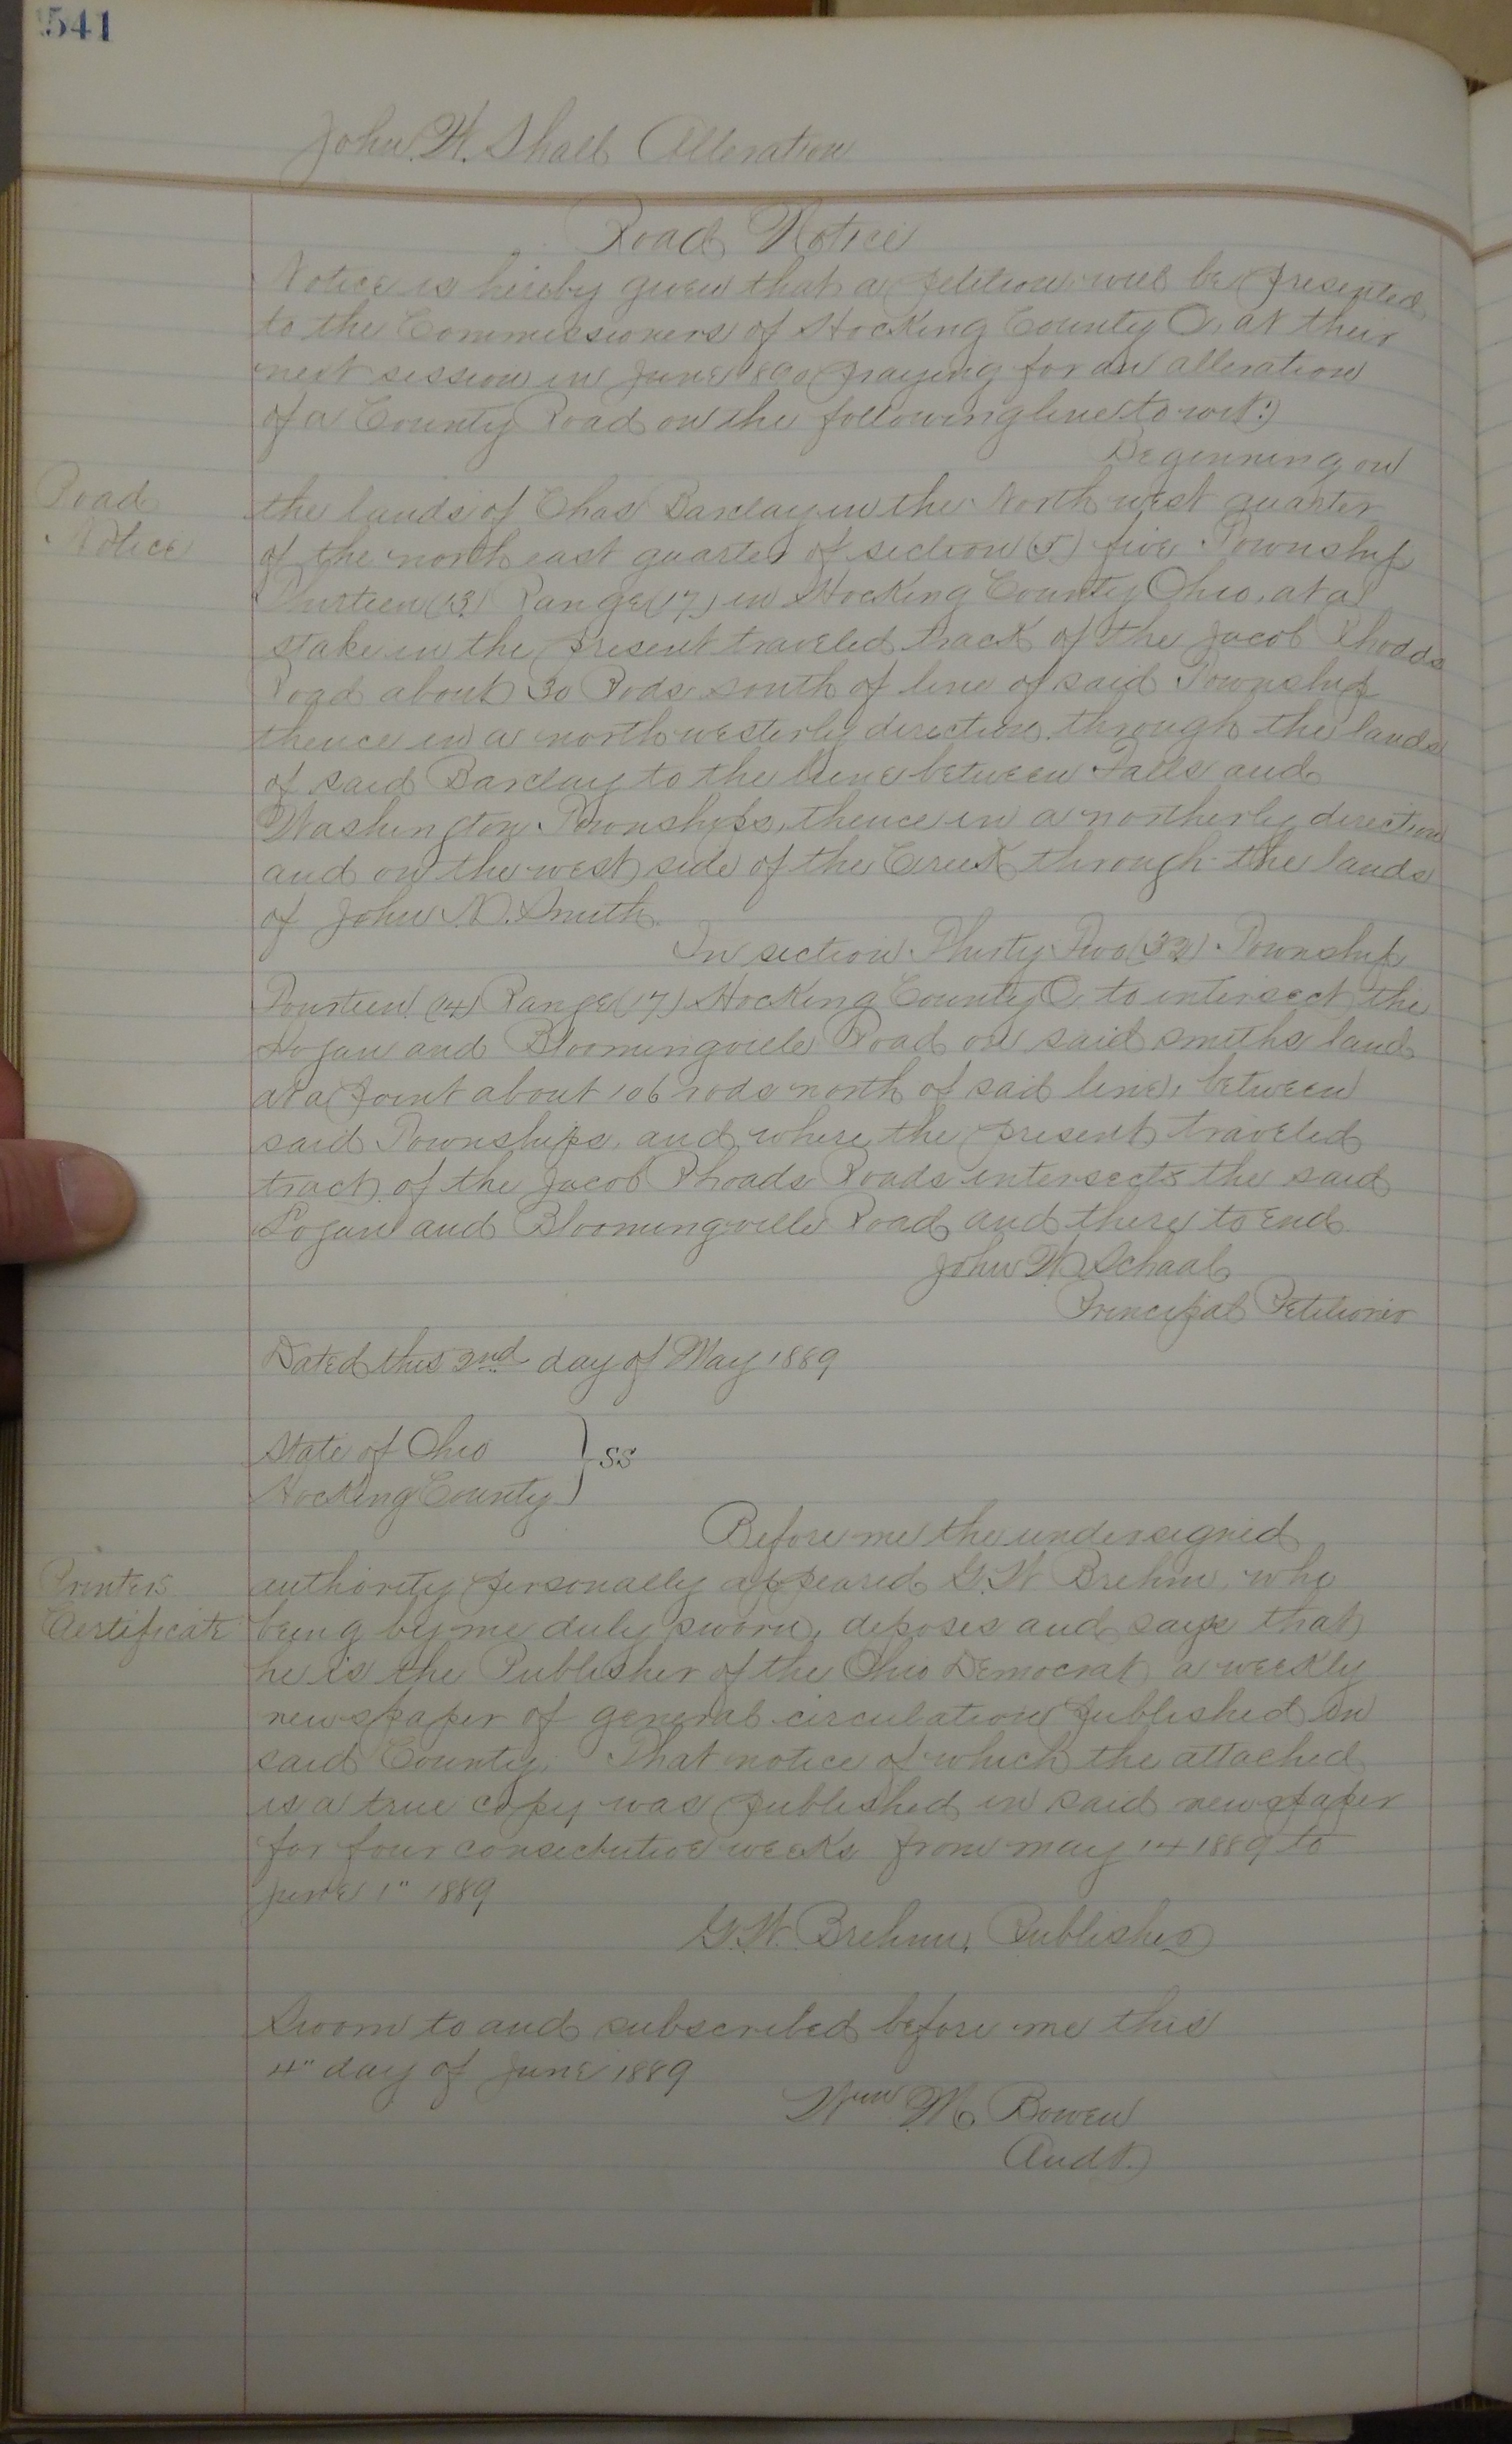 541
John. W. Shall Alleration
Road Notice
Notice is hereby given that a petition will be presented
to the Commissioners of Hocking County O, at their
next session in June 1890 praying for an alleration
of a County Road on the following line to wit:)
Beginning on
Road
the lands of Chas Barclay in the North west quarter
Notice
of the north east quarter of section (5) five Township
Thirteen (13) Range (17) in Hocking County Ohio, at a
stake in the present traveled track of the Jacob Rhodds
Road about 30 Rods south of line of said Township
thence in a northwesterly direction through the lands
of said Barclay to the line between Falls and
Washington Townships, thence in a northerly direction
and on the west side of the Creek through the lands
of John N. Smith.
In section Thirty Two (32) Township
Fourteen (14) Range (17) Hocking County O, to intersect the
Logan and Bloomingville Road on said smiths land
at a point about 106 rods north of said line, between
said Townships, and where the present traveled
tract of the Jacob Rhoads Roads intersects the said
Logan and Bloomingville Road and there to End
John W Schaal
Principal Petitioner
Dated this 2nd day of May 1889
State of Ohio
Hocking County } ss
Before me the undersigned
Printers
authority personally appeared G. W Brehm, who
Certificate
being by me duly sworn, deposes and says that
he is the Publisher of the Ohio Democrat a weekly
newspaper of general circulation published in
said County. That notice of which the attached
is a true copy was published in said newspaper
for four consecutive weeks from may 14 1889 to
June 1" 1889
G. W. Brehm, Publisher
Sworn to and subscribed before me this
4" day of June 1889
Wm M Bowen
Audt.